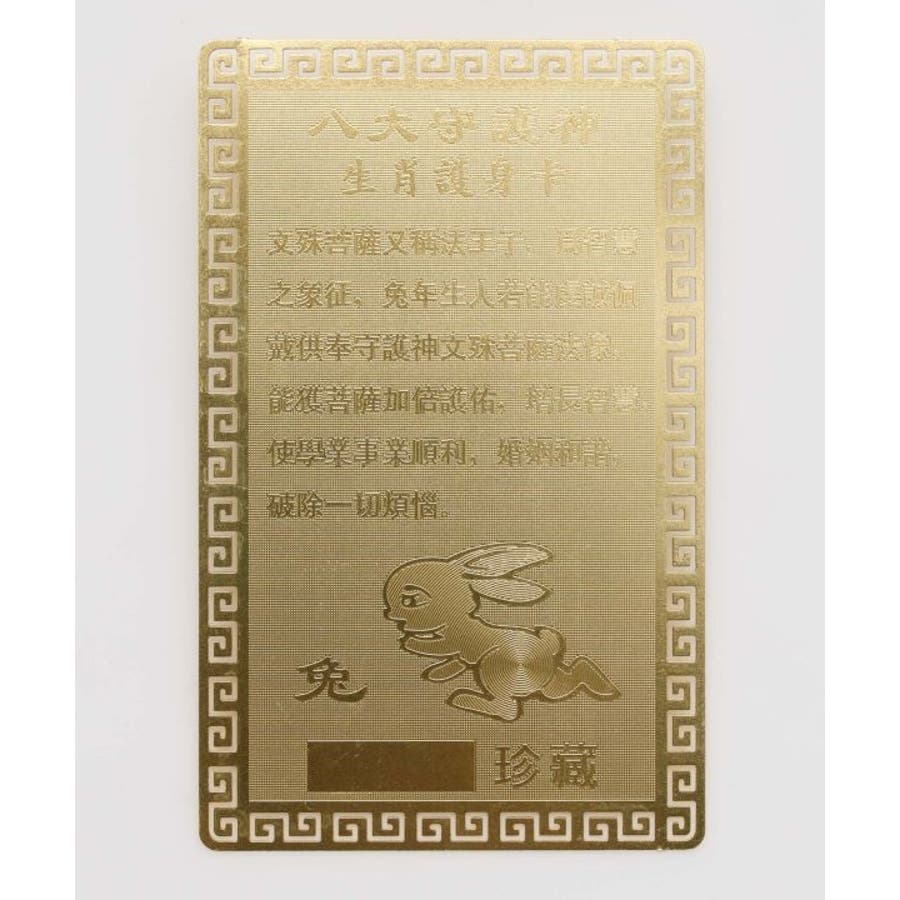 八大守護神
生肖護身卡
文殊菩薩又稱法王子，為智慧
之象征，兔年生人若能虔誠佩
戴供奉守護神文殊菩薩法像，
能獲菩薩加倍護佑，增長智慧，
使學業事業順利，婚姻和諧，
破除一切煩惱。
兔
珍藏